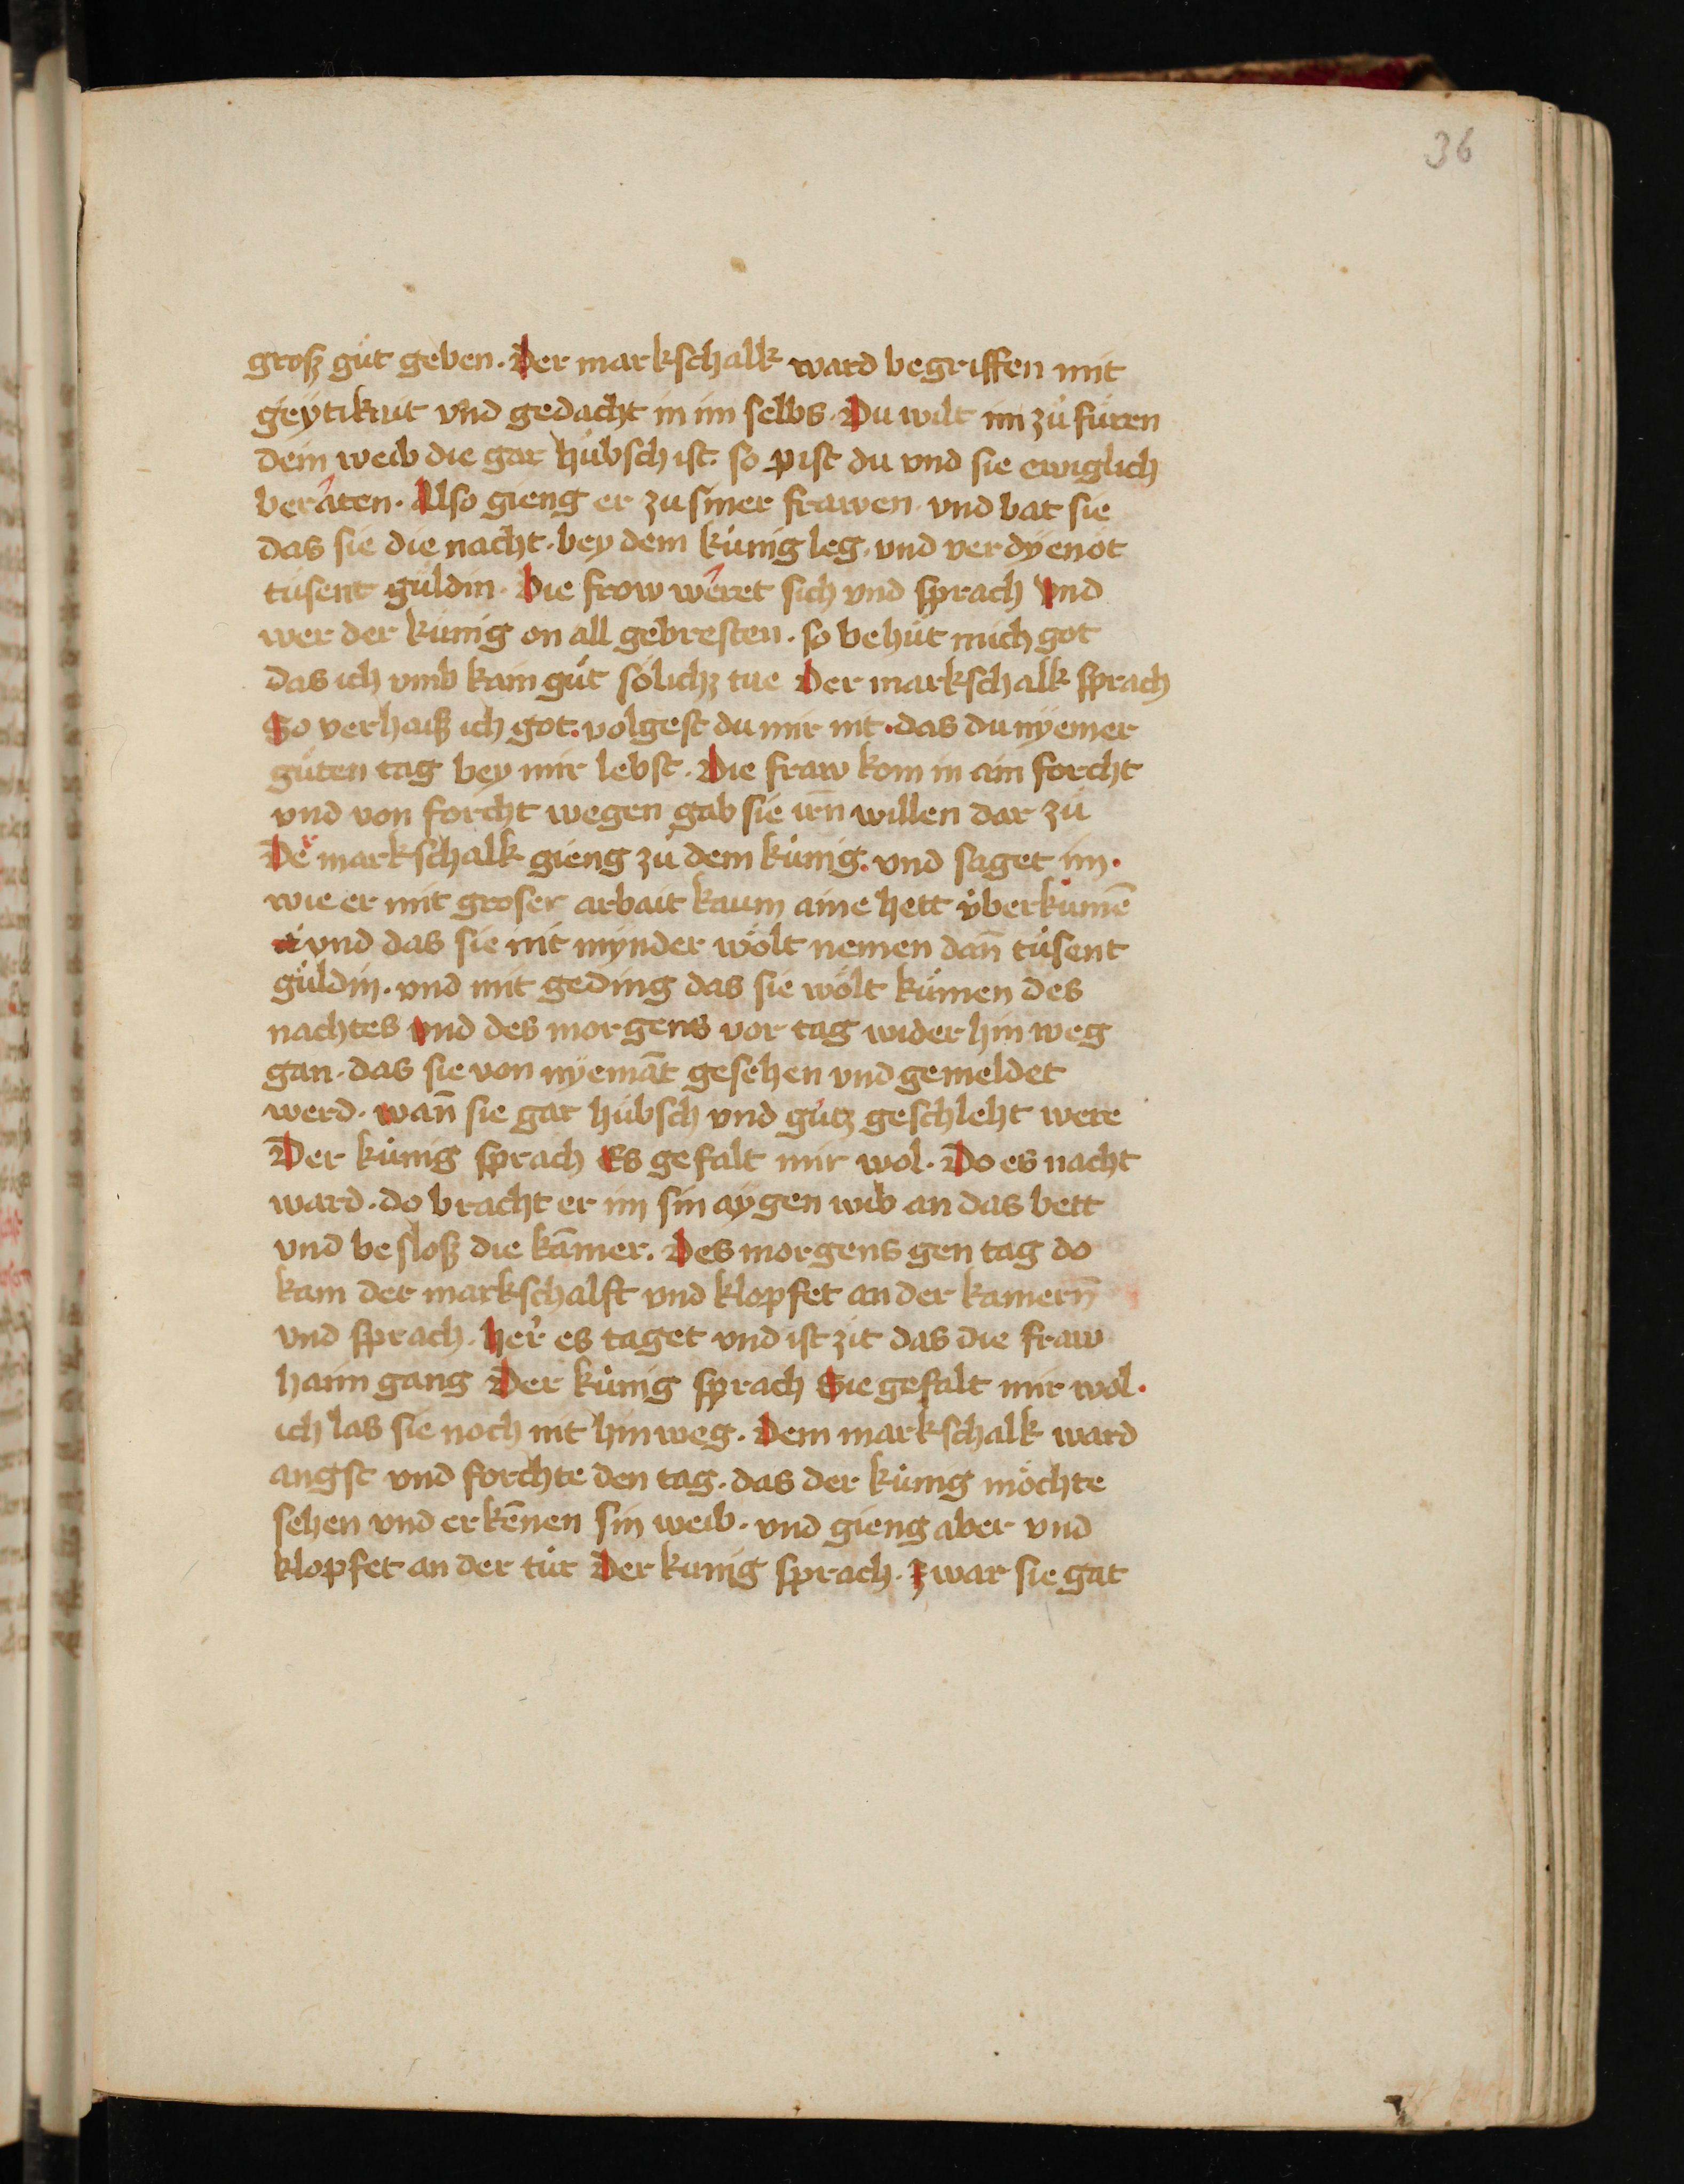 36
groß gůt geben. Der markschalk ward begriffen mit
geÿtikait vnd gedacht in im selbs. Du wilt im zů fůren
dein weib die gar hübsch ist. so pist du vnd sie ewiglich
beräten. Also gieng er zu siner frawen vnd bat sie
das sie die nacht. bey dem künig leg. vnd verdÿenöt
tusent guldin. Die frow weret sich vnd sprach Vnd
wer der künig on all gebresten. so behüt mich got
das ich vmb kain gůt sölichz tue Der markschalk sprach
So verhaiß ich got. volgest du mir nit. das du nÿemer
gůten tag bey mir lebst. Die fraw kom in ain forcht
vnd von forcht wegen gab sie irn̄ willen dar zů
De͛ markschalk gieng zů dem künig. vnd saget im.
wie er mit groser arbait kaum aine hett v̈berkumē
vnd das sie nit mÿnder wölt nemen dan̄ tusent
guldin. vnd mit geding das sie wölt kumen des
nachtes vnd des morgens vor tag wider hin weg
gan. das sie von nÿemāt gesehen vnd gemeldet
werd. wan̄ sie gar hübsch vnd gůtz geschleht were
Der künig sprach Es gefalt mir wol. Do es nacht
ward. do bracht er im sin aÿgen wib an das bett
vnd besloß die kām̄er. Des morgens gen tag do
kam der markschalk vnd klopfet an der kamern̄
vnd sprach. her͛ es taget vnd ist zit das die fraw
haim gang Der künig sprach Sie gefalt mir wol.
ich las sie noch nit hin weg. Dem markschalk ward
angst vnd forchte den tag. das der künig möchte
sehen vnd erkēnen sin weib. vnd gieng aber vnd
klopfet an der tür Der kunig sprach. Zwar sie gat